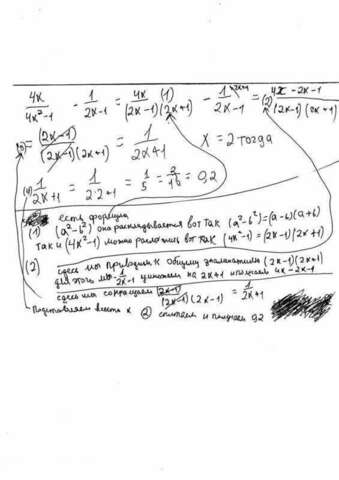 4x/(4x²-1) - 1/(2x-1) = (1) 4x/((2x-1)(2x+1)) - 1/(2x-1) = (2) (4x-2x-1)/((2x-1)(2x+1))
(3) = (2x-1)/((2x-1)(2x+1)) = 1/(2x+1) x = 2 тогда
(4) 1/(2x+1) = 1/(2·2+1) = 1/5 = 2/10 = 0,2
есть формула
(1) (a²-b²) она раскладывается вот так (a²-b²)=(a-b)(a+b)
так и (4x²-1) можно разложить вот так (4x²-1)=(2x-1)(2x+1)
(2) здесь мы приводим к общему знаменателю (2x-1)(2x+1)
для этого -1/(2x-1) умножаем на 2x+1 и 4x-2x-1
здесь мы сокращаем (2x-1)/((2x-1)(2x-1)) = 1/(2x+1)
Подставляем вместо x (2) считаем и 0,2